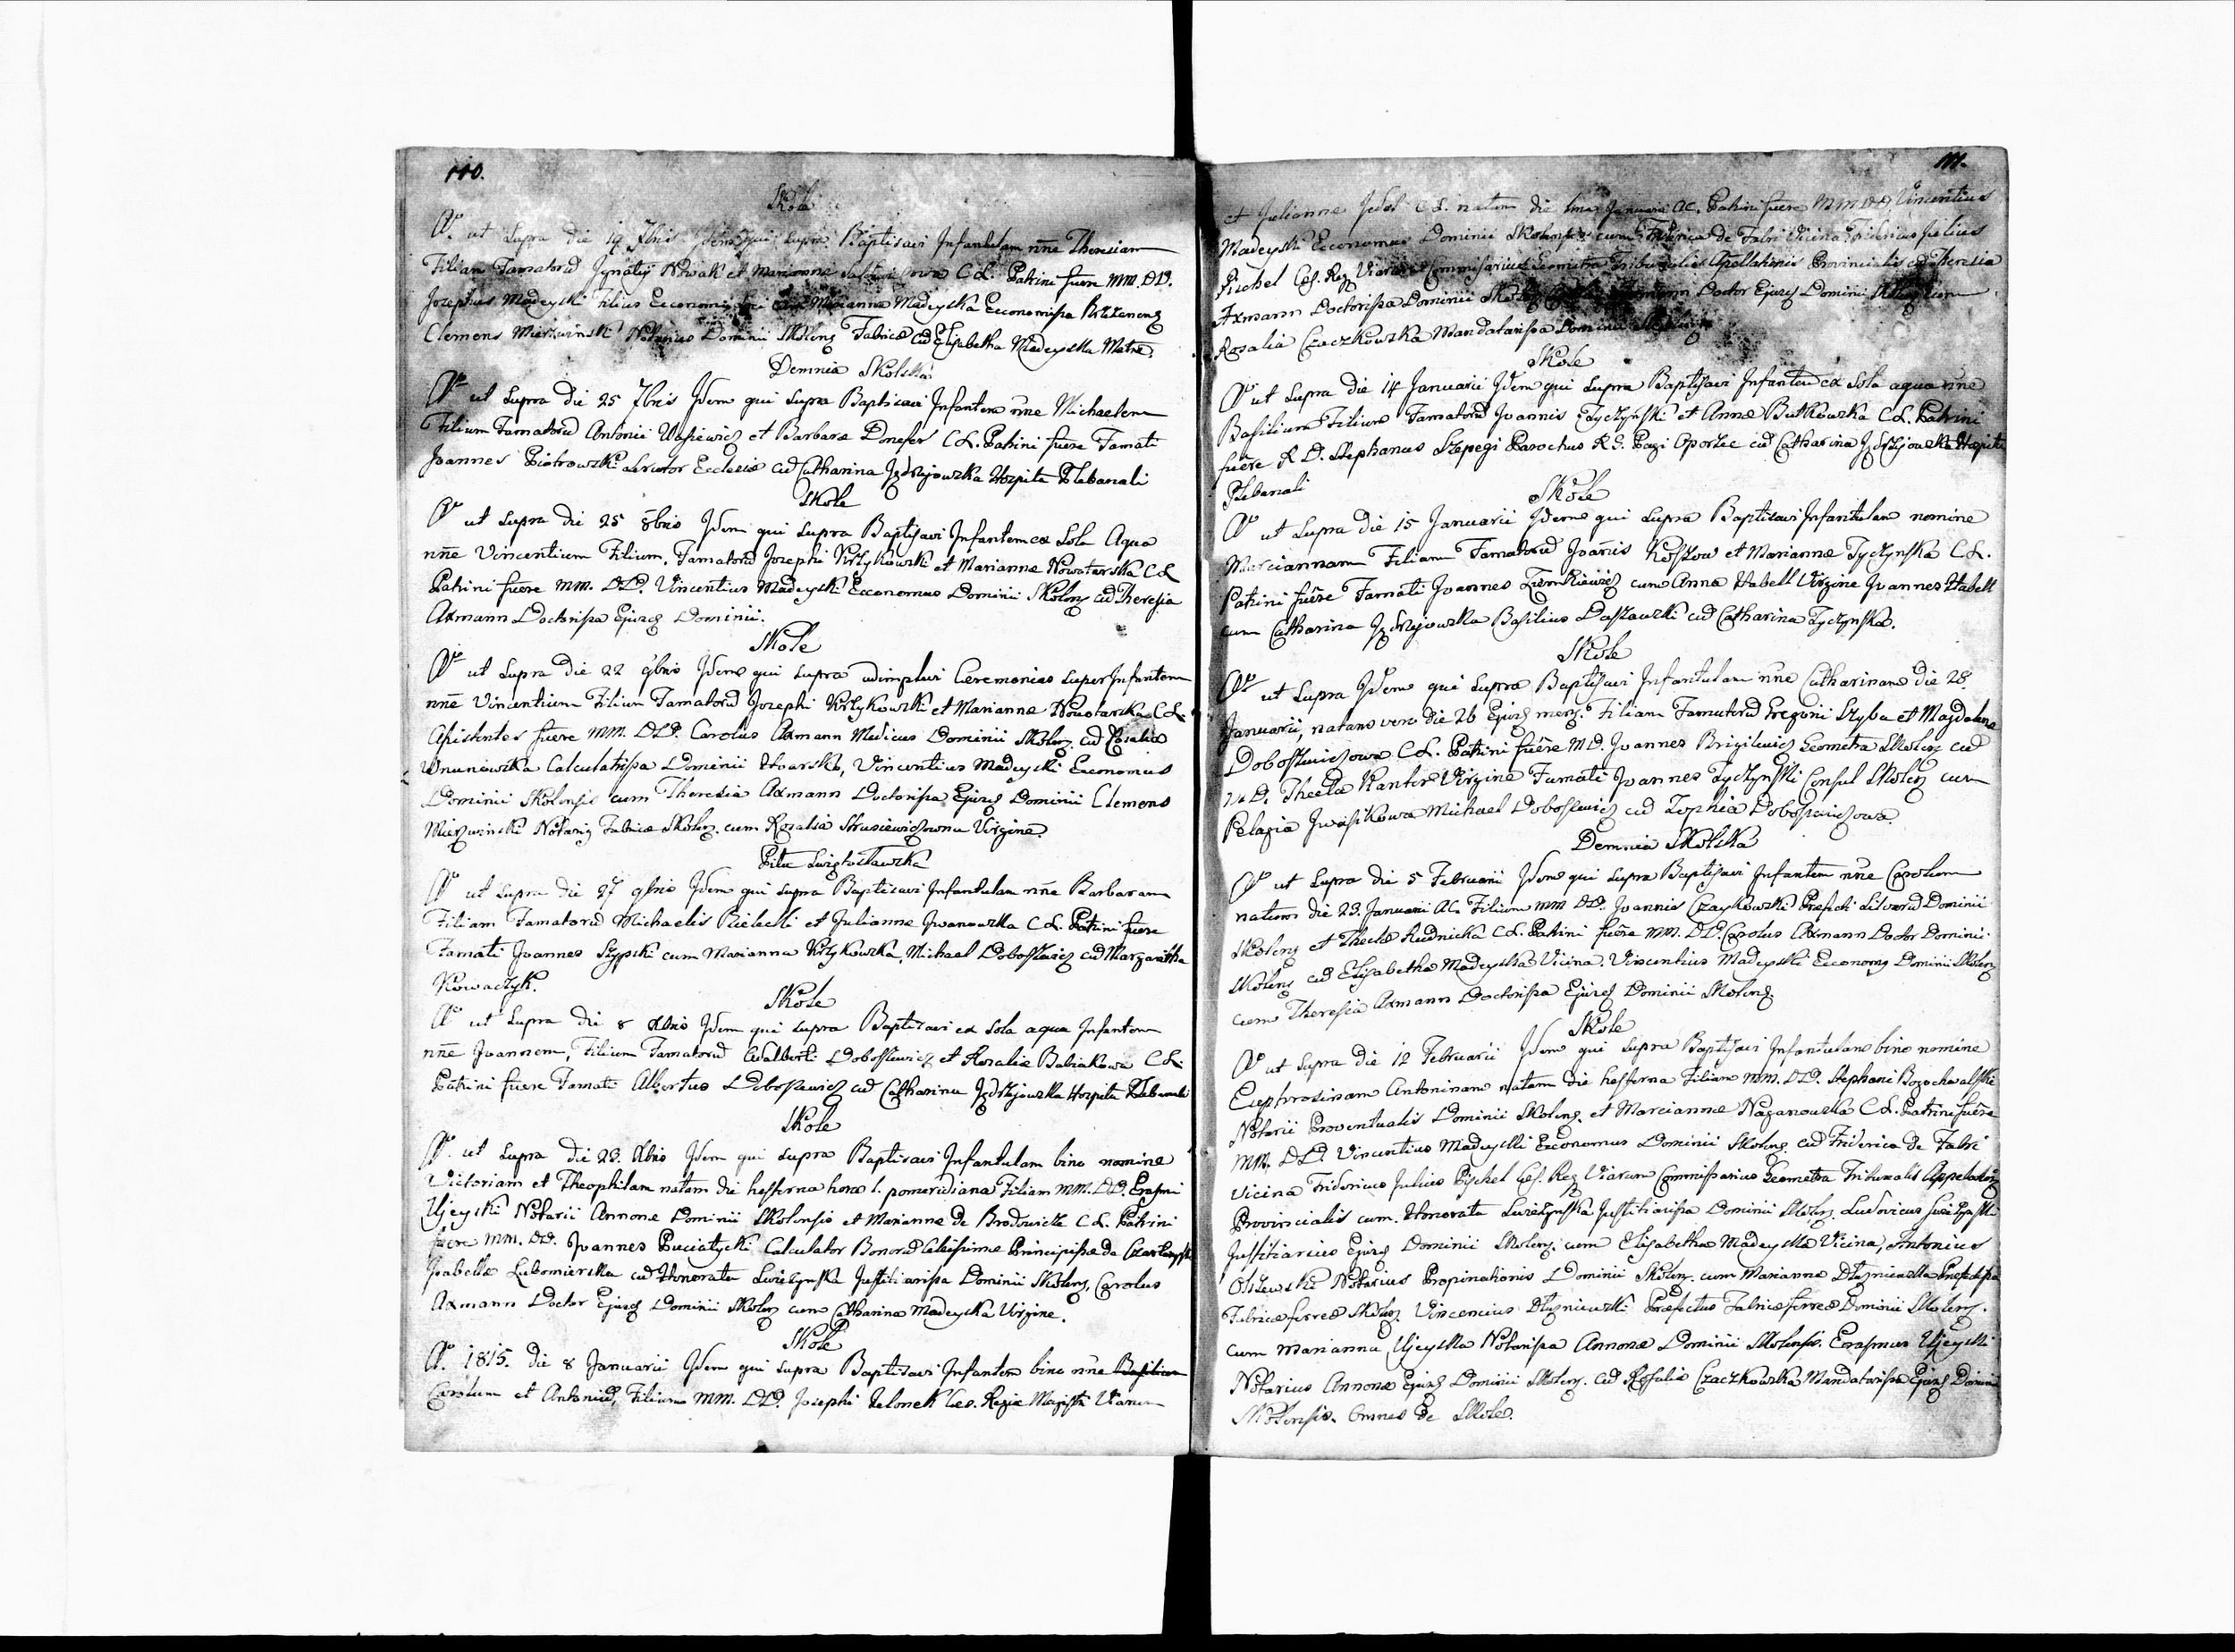 110.
Skole
Ao ut supra die 19 7bris Idem qui supra Baptisavi Infantulam nne Theresiam
Filiam Famatorū Ignatij Nowak et Marianne C L. Patrini fuere MM. DD.
Josephus Madeyski Filius Economi cum Marianna Madeyska Economissa
Clemens Mierzwinski Notarius Dominii Skolens Fabricæ cū Elisabetha Madeyska Matre.
Demnia Skolska
Ao ut supra die 25 7bris Idem qui supra Baptisavi Infantem nne Michaelem
Filium Famatorū Antonii Wasiewicz et Barbaræ Donefer C L. Patrini fuere Famati
Joannes Piotrowski servitor Ecclesiæ cū Catharina Jędrzejowska Hospita Plebanali
Skole
Ao ut supra die 25 8bris Idem qui supra Baptisavi Infantem ex sola Aqua
nne Vincentium Filium, Famatorū Josephi Krzykowski et Marianne Nowotarska C L
Patrini fuere MM. DD. Vincentius Madeyski Economus Dominii Skolens cū Theresia
Axmann Doctorissa Ejusq Dominii.
Skole
Ao ut supra die 22 9bris Idem qui supra adimplevi Ceremonias super Infantem
nne Vincentium Filium Famatorū Josephi Krzykowski et Marianne Nowotarska C L.
Assistentes fuere MM. DD. Carolus Axmann Medicus Dominii Skolens. cū Rosalia
Calculatrissa Dominii, Vincentius Madeyski Economus
Dominii Skolensis cum Theresia Axmann Doctorissa Ejusq Dominii Clemens
Mierzwinski Notariq Fabricæ Skolens. cum Rosalia Strusiewiczowna Virgine.
Świętosławska
Ao ut supra die 27 9bris Idem qui supra Baptisavi Infantulam nne Barbaram
Filiam Famatorū Michaelis Bielecki et Julianne Iwanowska C L. Patrini fuere
Famati Joannes cum Marianna Krzykowska, Michael Doboszewicz cū Margaritha
Kowaczyk.
Skole
Ao ut supra die 8 Xbris Idem qui supra Baptisavi ex sola aqua Infantem
nne Joannem, Filium Famatorū Adalberti Doboszewicz et Rosaliæ Babiakowa C L.
Patrini fuere Famati Albertus Doboszewicz cū Catharina Jędrzejowska Hospita Plebanali
Skole
Ao ut supra die 23. Xbris Idem qui supra Baptisavi Infantulam bino nomine
Victoriam et Theophilam natam die hesterna hora 1. pomeridiana Filiam MM. DD. Erasmi
Ujeyski Notarii Annonæ Dominii Skolensis et Marianne de Brodowicze C L. Patrini
fuere MM. DD. Joannes Puciatycki Calculator Bonorū Celsissime Principissæ de
Isabellæ Lubomierska cū Honorata Justitiarissa Dominii Skolens, Carolus
Axmann Doctor Ejusq Dominii Skolens cum Catharina Madeyska Virgine.
Skole
Ao 1815. die 8 Januarii Idem qui supra Baptisavi Infantem bino nne Basilium
Carolum et Antoniū, Filium MM. DD. Josephi Zelonek Ces. Regiæ Magistri Viarum
111.
et Julianne C L. natum die Januarii ac. Patrini fuere MM. DD. Vincentius
Madeyski Economus Dominii Skolensis cum Friderica de Fabri Vicina, Fridericus Julius
Pischel Ces. Reg Viarum Commissarius Geometra Tribunalis Apellationis Provincialis cū Theresia
Axmann Doctorissa Dominii Doctor Ejusq Dominii cum
Rosalia Czaczkowska Mandatarissa Dominii
Skole
Ao ut supra die 14 Januarii Idem qui supra Baptisavi Infantem ex sola aqua nne
Basilium Filium Famatorū Joannis Tyczynski et Annæ Butkowska C L. Patrini
fuêre R D. Stephanus Szepegi Parochus R G. Pagi Oporzec cū Catharina Jędrzejowska Hospita
Plebanali
Skole
Ao ut supra die 15 Januarii Idem qui supra Baptisavi Infantulam nomine
Mariannam Filiam Famatorū Joannis Koszow et Marianne Tyczynska C L.
Patrini fuêre Famati Joannes cum Anna Habell Virgine Joannes Habell
cum Catharina Jędrzejowska Basilius Daszawski cū Catharina Tyczynska.
Skole
Ao ut supra Idem qui supra Baptisavi Infantulam nne Catharinam die 28.
Januarii, natam vero die 26 Ejusq mens. Filiam Famatorū Gregorii Szyba et Magdalena
Doboszewiczowa C L. Patrini fuêre MD. Joannes Geometra Skolens cū
Thecla Kanter Virgine Famati Joannes Tyczynski Consul Skolens cum
Pelagia Iwasikowa Michael Doboszewicz cū Zophia Doboszewiczowa.
Demnia Skolska
Ao ut supra die 5 Februarii Idem qui supra Baptisavi Infantem nne Carolum
natum die 23. Januarii ac. Filium MM DD. Joannis Czaykowski Præfecti Silvarū Dominii
Skolens et Theclæ Rudnicka C L. Patrini fuêre MM. DD. Carolus Axmann Doctor Dominii
Skolens cū Elisabetha Madeyska Vicina. Vincentius Madeyski Economq Dominii Skolens
cum Theresia Axmann Doctorissa Ejusq Dominii Skolens.
Skole
Ao ut supra die 12 Februarii Idem qui supra Baptisavi Infantulam bino nomine
Euphrosinam Antoninam natam die hesterna Filiam MM. DD. Stephani
Notarii Proventualis Dominii Skolens. et Mariannæ Naganowska C L. Patrini fuêre
MM. DD. Vincentius Madeyski Economus Dominii Skolens cū Friderica de Fabri
Vicina Fridericus Julius Pischel Ces. Reg Viarum Commissarius Geometra Tribunalis
Provincialis cum. Honorata Justitiarissa Dominii Skolens. Ludovicus
Justitiarius Ejusq Dominii Skolens. cum Elisabetha Madeyska Vicina, Antonius
Olszewski Notarius Propinationis Dominii Skolens. cum Marianna Dłuzniewska Præfectissa
Fabricæ ferreæ Skolens. Vincencius Dłuzniewski Præfectus Fabricæ ferreæ Dominii Skolens.
cum Marianna Ujeyska Notarissa Annonæ Dominii Skolensis. Erasmus Ujeyski
Notarius Annonæ Ejusq Dominii Skolens. cū Rosalia Czaczkowska Mandatarissa Ejusq Dominii
Skolensis. Omnes de Skole.